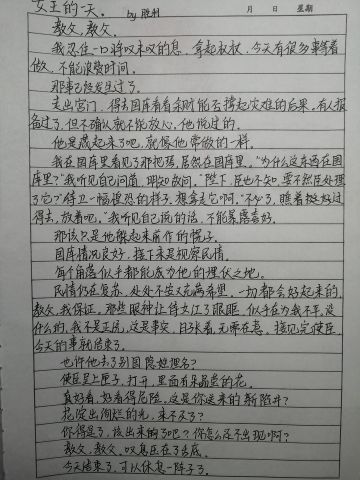 女王的一天。 by 胜利
月 日 星期
教父,教父。
我忍住一口将叹未叹的息,拿起权杖,今天有很多事等着
做,不能浪费时间。
那事已经发生过了。
走出宫门,得去国库看看余财能否撑起灾难的后果,有人报
备过了,但不确认就不能放心,他说过的。
他是藏起来了吧,就像他常做的一样。
我在国库里看见了那把琴,居然在国库里,“为什么这东西在国
库里?”我听见自己问道,明知故问。“陛下,臣也不知,要不然臣处理
了它?”侍卫一幅惶恐的样子,想拿走它啊。“不必了,瞧着挺好过
得去,放着吧。”我听见自己说的话,不能暴露喜好。
那该只是他躲起来前作的幌子。
国库情况良好,接下来是视察民情。
每个角落似乎都能成为他的埋伏之地。
民情仍在复苏,处处不安又充满希望,一切都会好起来的,
教父,我保证。那些眼神让侍女红了眼眶,似乎在为我不平,没
什么的,我不是正民,这是事实,日子长着,无需在意。接见完使臣,
今天的事就结束了。
也许他去了别国隐姓埋名?
使臣呈上匣子,打开,里面有朵晶蓝的花。
真好看,好看得危险,这是你送来的新陷井?
花绽出绚烂的光,来不及了?
你得逞了,该出来的了吧?你怎么还不出现啊?
教父,教父,叹息压在了舌底。
今天结束了,可以休息一阵子了。